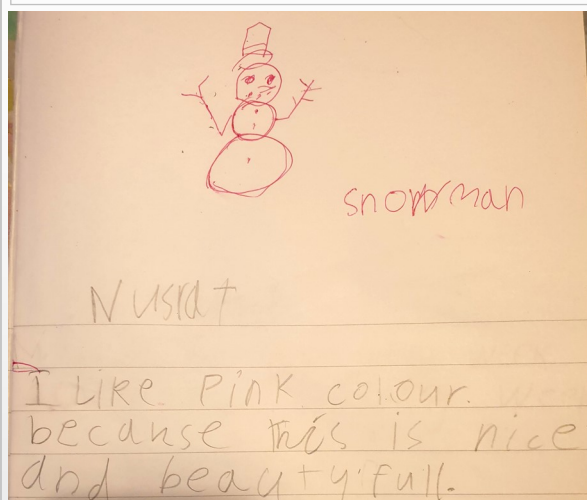 snowman
Nusrat
I Like Pink colour.
because this is nice
and beautyfull.